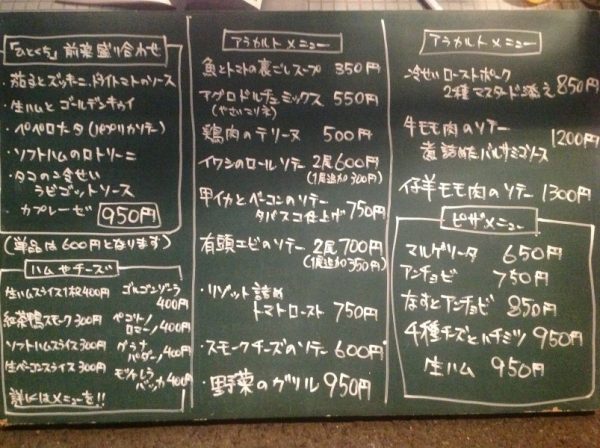 「ひとくち」前菜盛り合わせ
・茄子とズッキーニ、ドライトマトのソース
・生ハムとゴールデンキウイ
・ペペロナータ(パプリカソテー)
・ソフトハムのロトリーニ
・タコの冷せい
ラビゴットソース
・カプレーゼ 950円
(単品は600円となります)
ハムやチーズ
生ハムスライス1枚400円
紅茶鴨スモーク300円
ソフトハムスライス300円
生ベーコンスライス300円
詳しくはメニューを!!
ゴルゴンゾーラ
400円
ペコリーノ
ロマーノ400円
グラナ
パダーノ400円
モツァレラ
バッカ400円
アラカルトメニュー
魚とトマトの裏ごしスープ 350円
アグロドルチェミックス 550円
(やさいマリネ)
鶏肉のテリーヌ 500円
イワシのロールソテー 2尾600円
(1尾追加300円)
甲イカとベーコンのソテー
タバスコ仕上げ 750円
有頭エビのソテー 2尾700円
(1尾追加350円)
・リゾット詰め
トマトロースト 750円
・スモークチーズのソテー 600円
・野菜のグリル 950円
アラカルトメニュー
冷せいローストポーク
2種マスタード添え 850円
牛モモ肉のソテー 1200円
煮詰めたバルサミコソース
仔羊モモ肉のソテー 1300円
ピザメニュー
マルゲリータ 650円
アンチョビ 750円
なすとアンチョビ 850円
4種チーズとハチミツ 950円
生ハム 950円